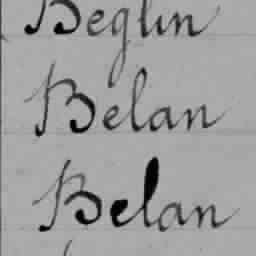 Beglin
Belan
Belan